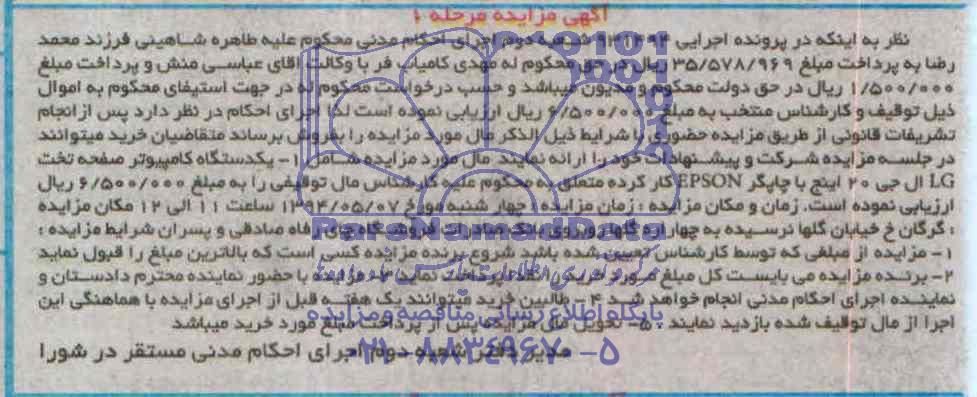 آگهی مزایده مرحله 1
نظر به اینکه در پرونده اجرایی شعبه دوم اجرای احکام مدنی محکوم علیه طاهره شاهینی فرزند محمد
رضا به پرداخت مبلغ ۳۵/۵۷۸/۹۶۹ ریال در حق محکوم له مهدی کامیاب فر با وکالت آقای عباسی منش و پرداخت مبلغ
۱/۵۰۰/۰۰۰ ریال در حق دولت محکوم و مدیون میباشد و حسب درخواست محکوم له در جهت استیفای محکوم به اموال
ذیل توقیف و کارشناس منتخب به مبلغ ۶/۵۰۰/۰۰۰ ریال ارزیابی نموده است لذا اجرای احکام در نظر دارد پس از انجام
تشریفات قانونی از طریق مزایده حضوری با شرایط ذیل الذکر مال مورد مزایده را بفروش برساند متقاضیان خرید میتوانند
در جلسه مزایده شرکت و پیشنهادات خود را ارائه نمایند مال مورد مزایده شامل ۱- یکدستگاه کامپیوتر صفحه تخت
LG ال جی ۲۰ اینچ با چاپگر EPSON کار کرده متعلق به محکوم علیه کارشناس مال توقیفی را به مبلغ ۶/۵۰۰/۰۰۰ ریال
ارزیابی نموده است. زمان و مکان مزایده : زمان مزایده : چهار شنبه مورخ ۱۳۹۴/۰۵/۰۷ ساعت ۱۱ الی ۱۲ مکان مزایده
: گرگان خ خیابان گلها نرسیده به چهار راه گلها روبروی بانک صادرات فروشگاه چوب رفاه صادقی و پسران شرایط مزایده :
۱- مزایده از مبلغی که توسط کارشناس تعیین شده باشد شروع برنده مزایده کسی است که بالاترین مبلغ را قبول نماید
۲- برنده مزایده می بایست کل مبلغ مورد خرید را نقدا پرداخت نماید ۳- مزایده با حضور نماینده محترم دادستان و
نماینده اجرای احکام مدنی انجام خواهد شد ۴- طالبین خرید میتوانند یک هفته قبل از اجرای مزایده با هماهنگی این
اجرا از مال توقیف شده بازدید نمایند ۵- تحویل مال مزایده پس از پرداخت مبلغ مورد خرید میباشد
مدیر دفتر شعبه دوم اجرای احکام مدنی مستقر در شورا
ParsNamadData
پایگاه اطلاع رسانی مناقصه و مزایده
۰۲۱-۸۸۳۴۹۶۷۰-۵